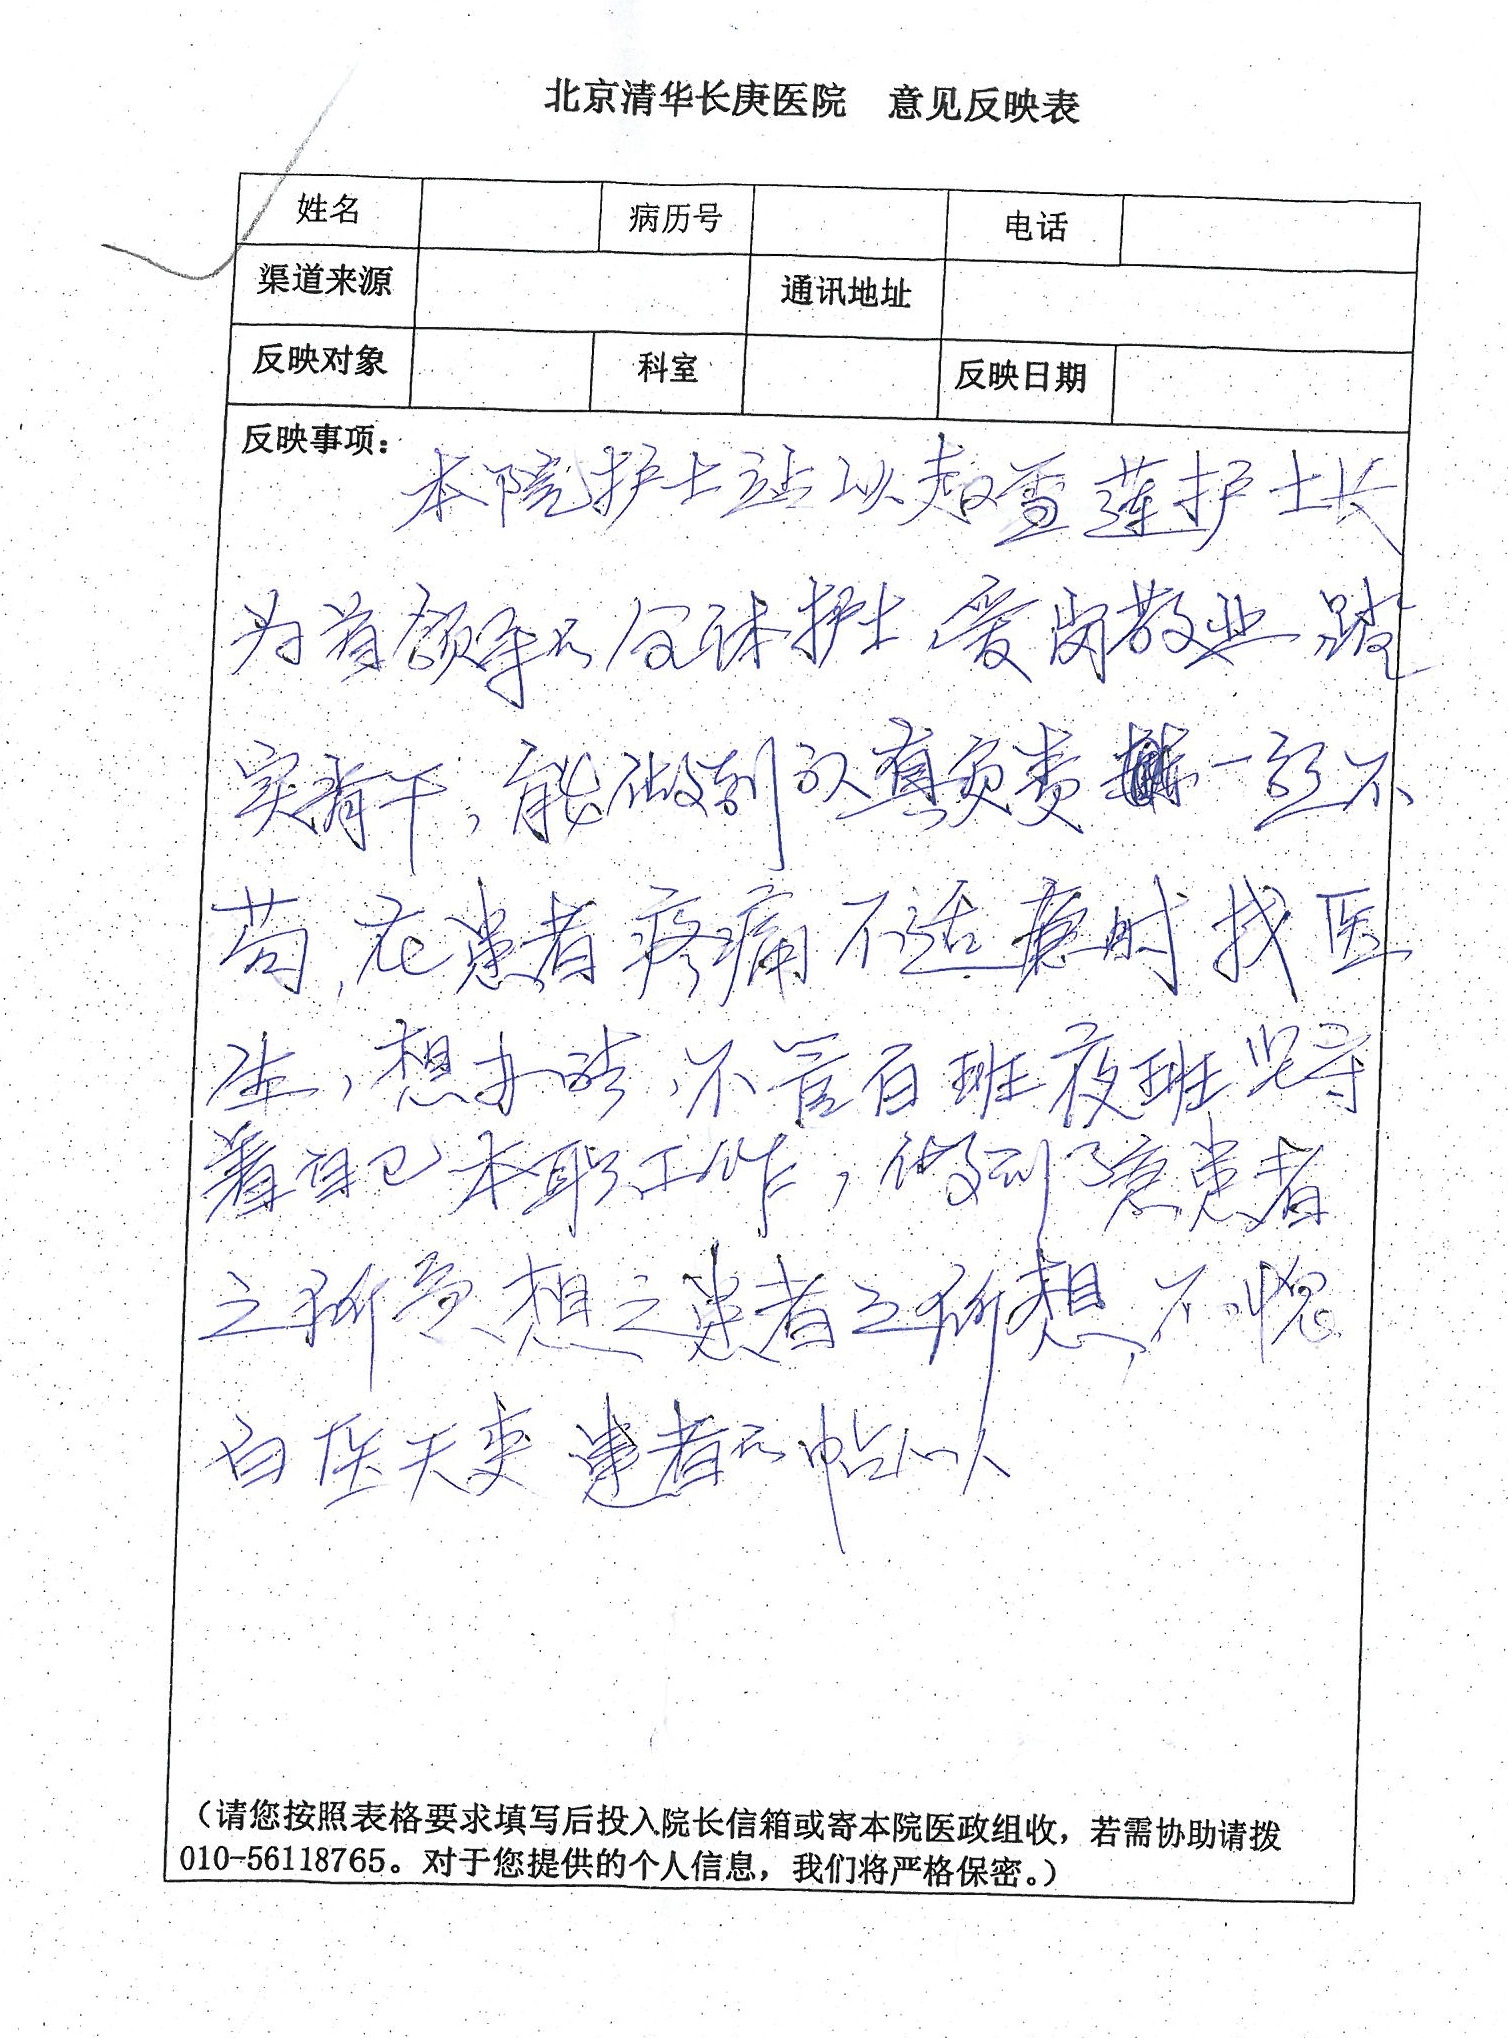 北京清华长庚医院 意见反映表
姓名 病历号 电话
渠道来源 通讯地址
反映对象 科室 反映日期
反映事项：
本院护士站以赵雪莲护士长
为首领导的全体护士，爱岗敬业，踏
实肯干，能做到认真负责一丝不
苟，在患者疼痛不适急时找医
生，想办法，不管白班夜班坚守
着自己本职工作，做到了急患者
之所急想之患者之所想，不愧
白医天使 患者的贴心人
（请您按照表格要求填写后投入院长信箱或寄本院医政组收，若需协助请拨
010-56118765。对于您提供的个人信息，我们将严格保密。）